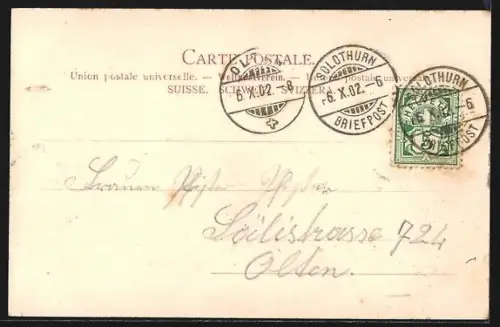 CARTE POSTALE.
Union postale universelle. — Weltpostverein. — Unione postale universale
SUISSE. SCHWEIZ. SVIZZERA.
OLTEN
6.X.02.-8
SOLOTHURN
6.X.02.-6
BRIEFPOST
SOLOTHURN
-6
BRIEFPOST
5
Frauen Pfister
Sälistrasse 724
Olten.